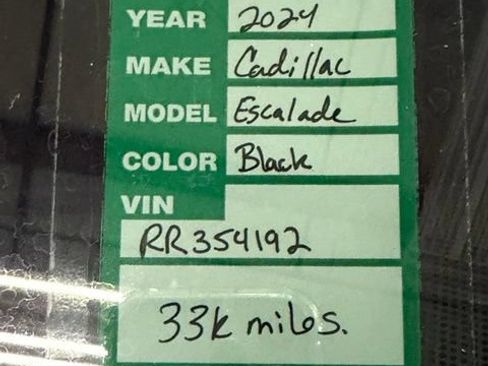 YEAR 2024
MAKE Cadillac
MODEL Escalade
COLOR Black
VIN
RR354192
33k miles.